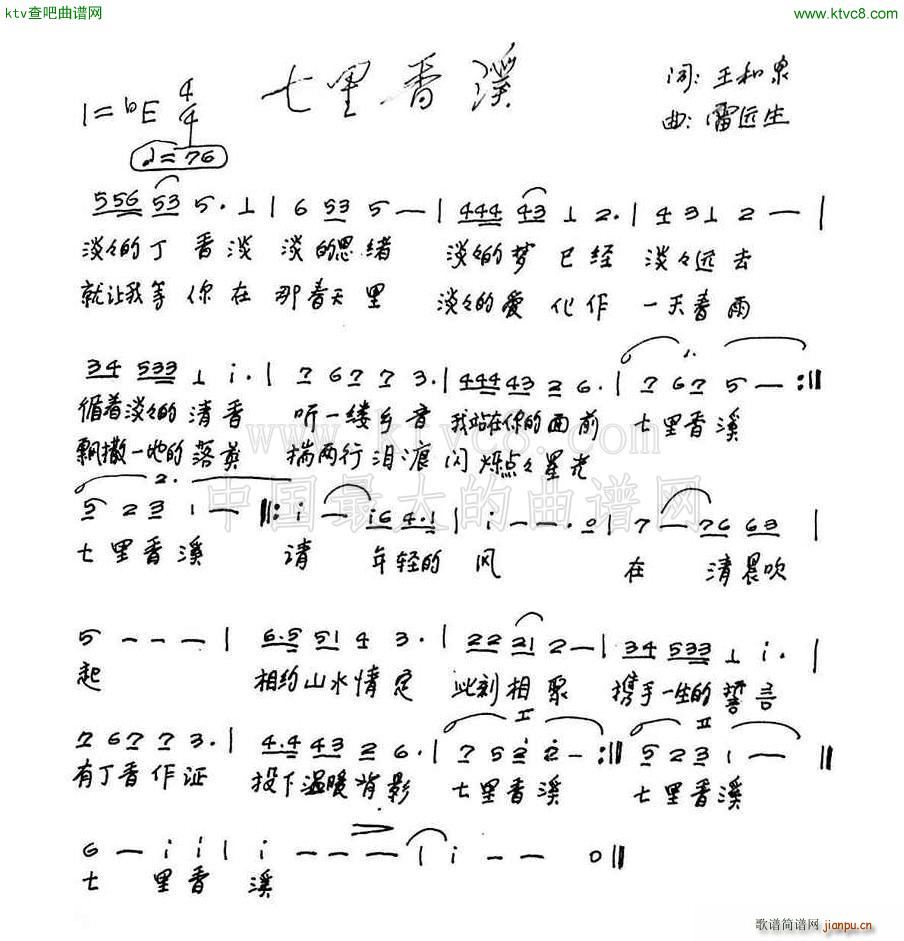 ktv查吧曲谱网 www.ktvc8.com
七里香溪
词: 王和泉
1=bE 4/4
曲: 雷远生
♩=76
556 53 5. 1 | 6 53 5 — | 444 43 1 2. | 4 3 1 2 — |
淡々的丁香淡 淡的思绪 淡々的梦已经 淡々远去
就让我等你在 那春天里 淡々的爱化作 一天春雨
34 533 1 i. | 7 6 7 7 3. | 444 43 2 6. | 1. 7 6 7 5 — :||
循着淡々的清香 听一缕乡音 我站在你的面前 七里香溪
飘撒一地的落英 揣两行泪痕 闪烁点々星光
www.ktvc8.com
中国最大的曲谱网
2. 5 2 3 1 — ||: i — i6 4.1 | i — — . 0 | 7 — 76 63 |
七里香溪 请 年轻的 风 在 清晨吹
5 — — — | 6.5 51 4 3. | 22 21 2 — | 34 533 1 i. |
起 相约山水情定 此刻相聚 携手一生的誓言
7 6 7 7 3. | 4.4 43 2 6. | I 7 5 2 2 — :|| II 5 2 3 1 — ||
有丁香作证 投下温暖背影 七里香溪 七里香溪
6 — i i | i — — — | i — — 0 ||
七 里香 溪
歌谱简谱网
jianpu.cn